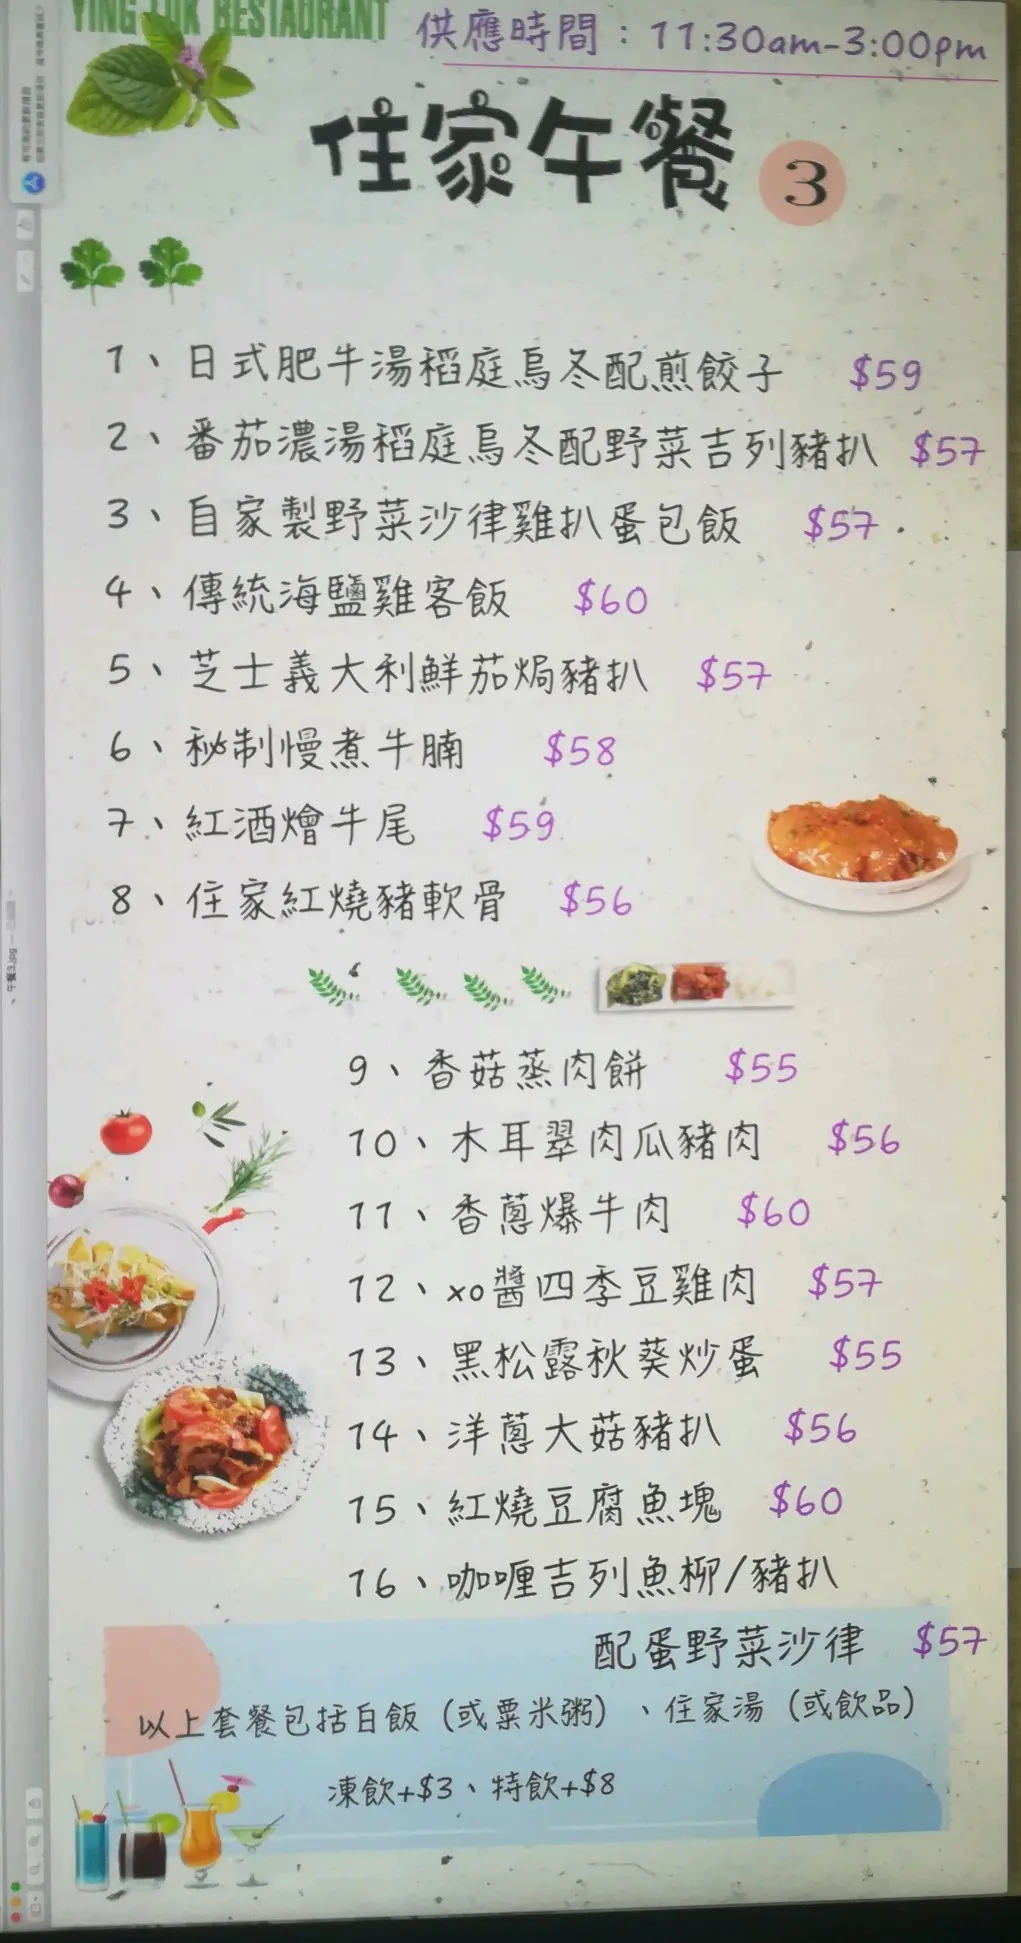 YING LUK RESTAURANT
供應時間：11:30am-3:00pm
住家午餐 3
1、日式肥牛湯稻庭烏冬配煎餃子 $59
2、番茄濃湯稻庭烏冬配野菜吉列豬扒 $57
3、自家製野菜沙律雞扒蛋包飯 $57
4、傳統海鹽雞客飯 $60
5、芝士義大利鮮茄焗豬扒 $57
6、秘制慢煮牛腩 $58
7、紅酒燴牛尾 $59
8、住家紅燒豬軟骨 $56
9、香菇蒸肉餅 $55
10、木耳翠肉瓜豬肉 $56
11、香蔥爆牛肉 $60
12、xo醬四季豆雞肉 $57
13、黑松露秋葵炒蛋 $55
14、洋蔥大菇豬扒 $56
15、紅燒豆腐魚塊 $60
16、咖喱吉列魚柳/豬扒
配蛋野菜沙律 $57
以上套餐包括白飯（或粟米粥）、住家湯（或飲品）
凍飲+$3、特飲+$8
午餐3.jpg